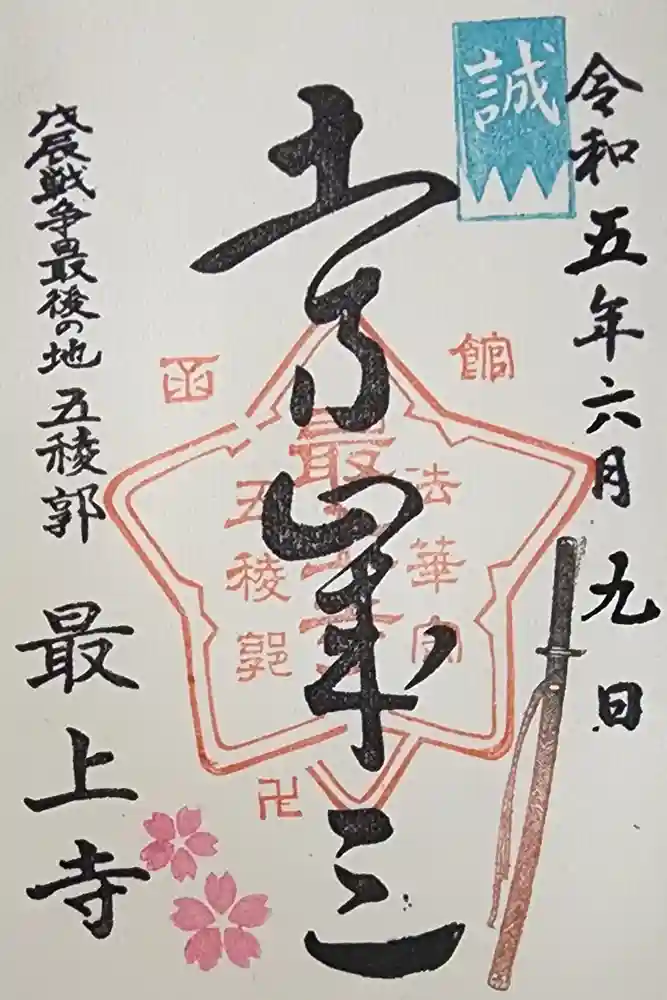 令和五年六月九日
誠
土方歳三
函館
法華宗
最上寺
五稜郭
卍
戊辰戦争最後の地 五稜郭 最上寺